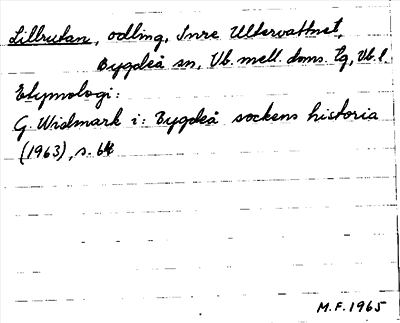 Lillrutan, odling, Inre Ultervattnet,
Bygdeå sn, Vb. mell. doms. tg, Vb. l.
Etymologi:
G. Widmark i: Bygdeå sockens historia
(1963), s. 64
M.F. 1965